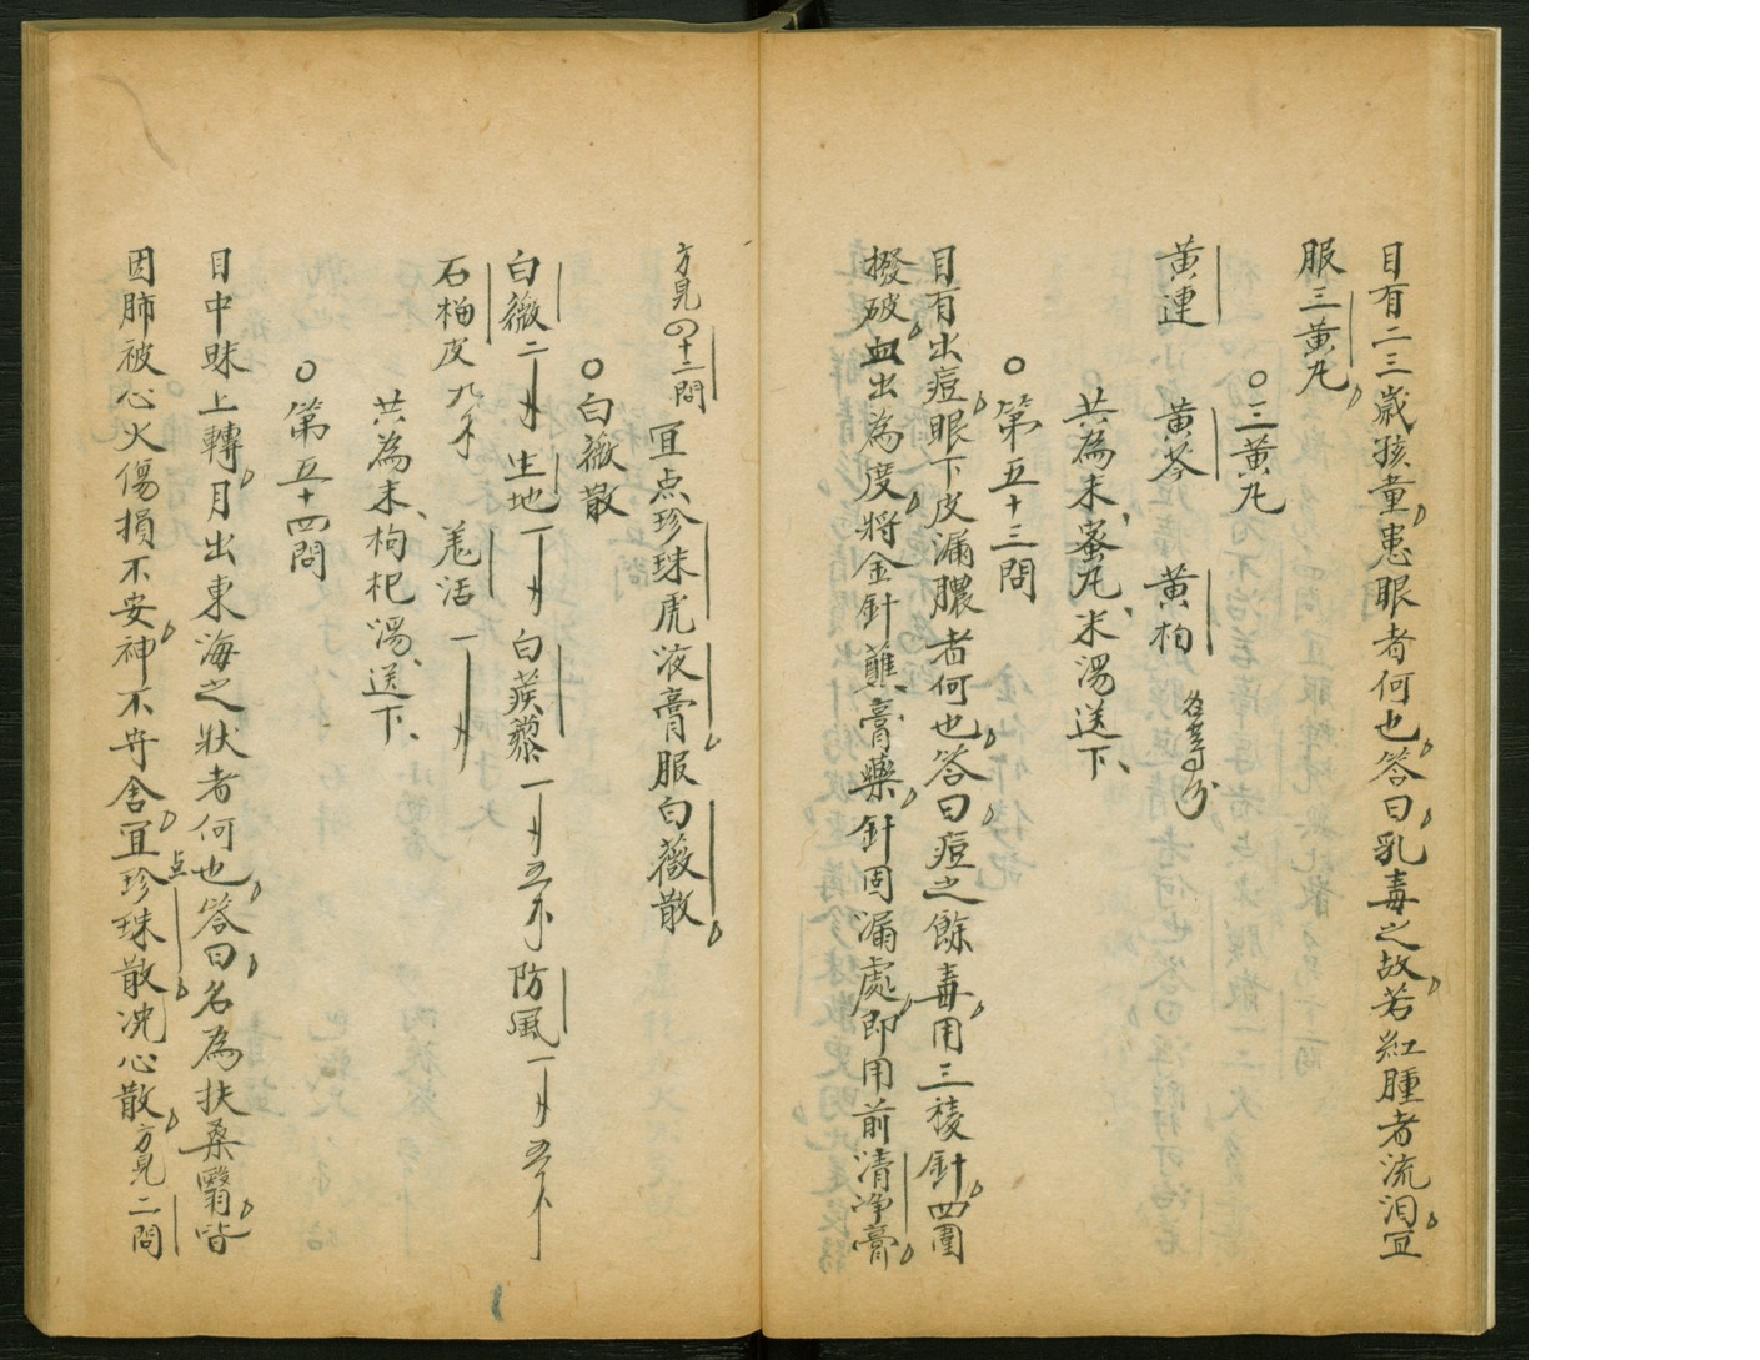 目有二三歲孩童患眼者何也答曰乳毒之故若紅腫者流泪宜
服三黄丸
○三黄丸
黄連 黄芩 黄栢 各等分
共為末蜜丸米湯送下
○第五十三問
目有出痘眼下皮漏膿者何也答曰痘之餘毒用三稜針四圍
撥破血出為度將金針蘸膏藥針固漏處即用前清净膏
方見四十二問 宜点珍珠虎液膏服白薇散
○白薇散
白薇二 生地一 白蒺藜一 五 防風一 五
石榴皮九 羗活一
共為末枸杞湯送下
○第五十四問
目中眛上轉月出東海之狀者何也答曰名為扶桑翳皆
因肺被心火傷損不安神不守舍宜点珍珠散洗心散方見二問